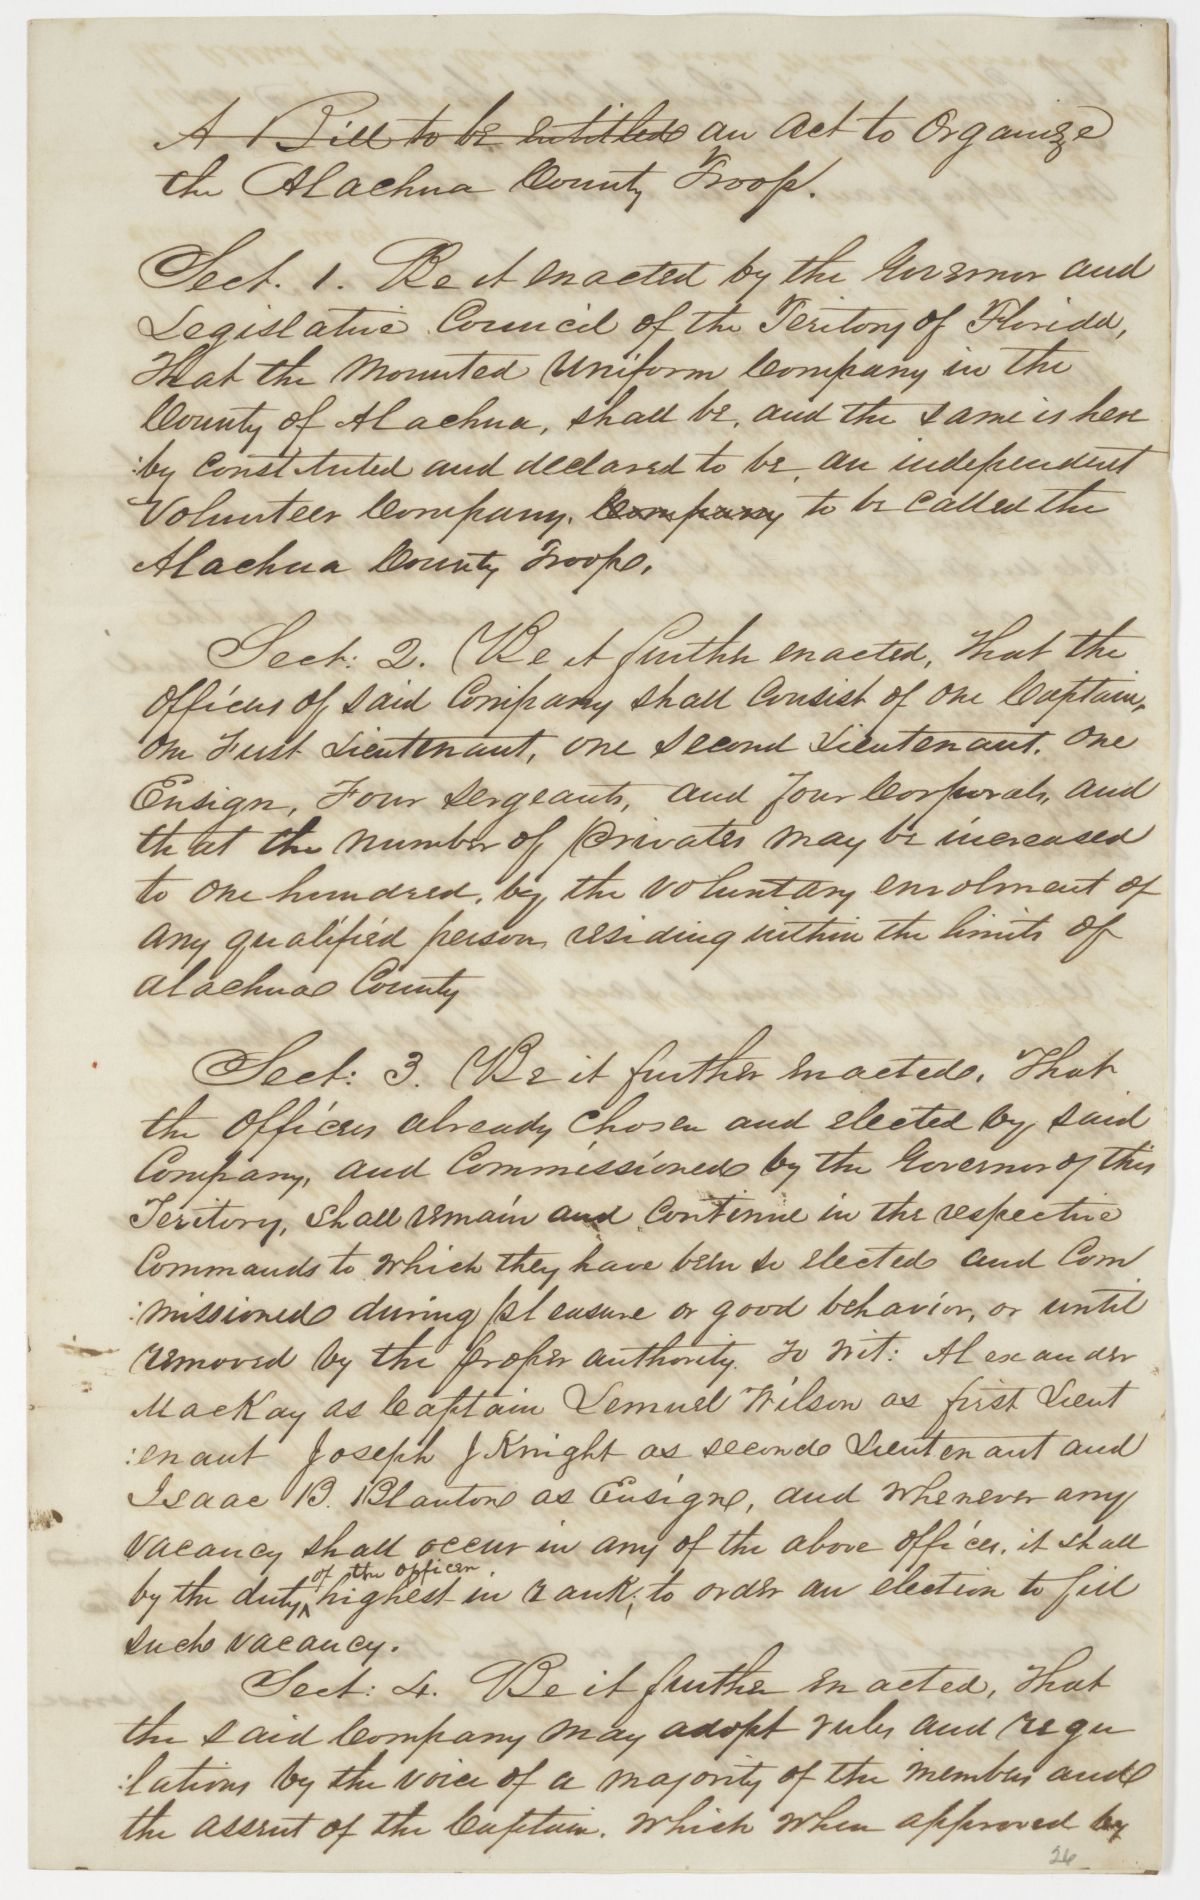 A Bill to be entitled an Act to Organize
the Alachua County Troop.
Sect. 1. Be it enacted by the Governor and
Legislative Council of the Teritory of Florida,
That the Mounted Uniform Company in the
County of Alachua, shall be, and the same is here
:by constituted and declared to be, an independent
Volunteer Company, Company to be called the
Alachua County Troop.
Sect: 2. Be it further enacted, That the
Officers of said Company shall Consist of one Captain,
One First Lieutenant, one second Lieutenant. One
Ensign, Four Sergeants, and four Corporals, and
that the number of privates may be increased
to one hundred, by the voluntary enrolment of
any qualified person residing within the limits of
Alachua County
Sect: 3. Be it further enacted, That
the Officers already chosen and elected by said
Company, and Commissioned by the Governor of this
Teritory, shall remain and continue in the respective
Commands to which they have been so elected and Com
:missioned during pleasure or good behavior, or until
removed by the proper authority. To Wit: Alexander
MacKay as Captain Lemuel Wilson as first Lieut
:enant Joseph J Knight as second Lieutenant and
Isaac B. Blanton as Ensign, and whenever any
vacancy shall occur in any of the above offices, it shall
of the officer
by the duty highest in rank, to order an election to fill
such vacancy.
Sect: 4. Be it further enacted, That
the said Company may adopt rules and regu
:lations by the voice of a majority of the members and
the assent of the Captain. Which when approved by
26